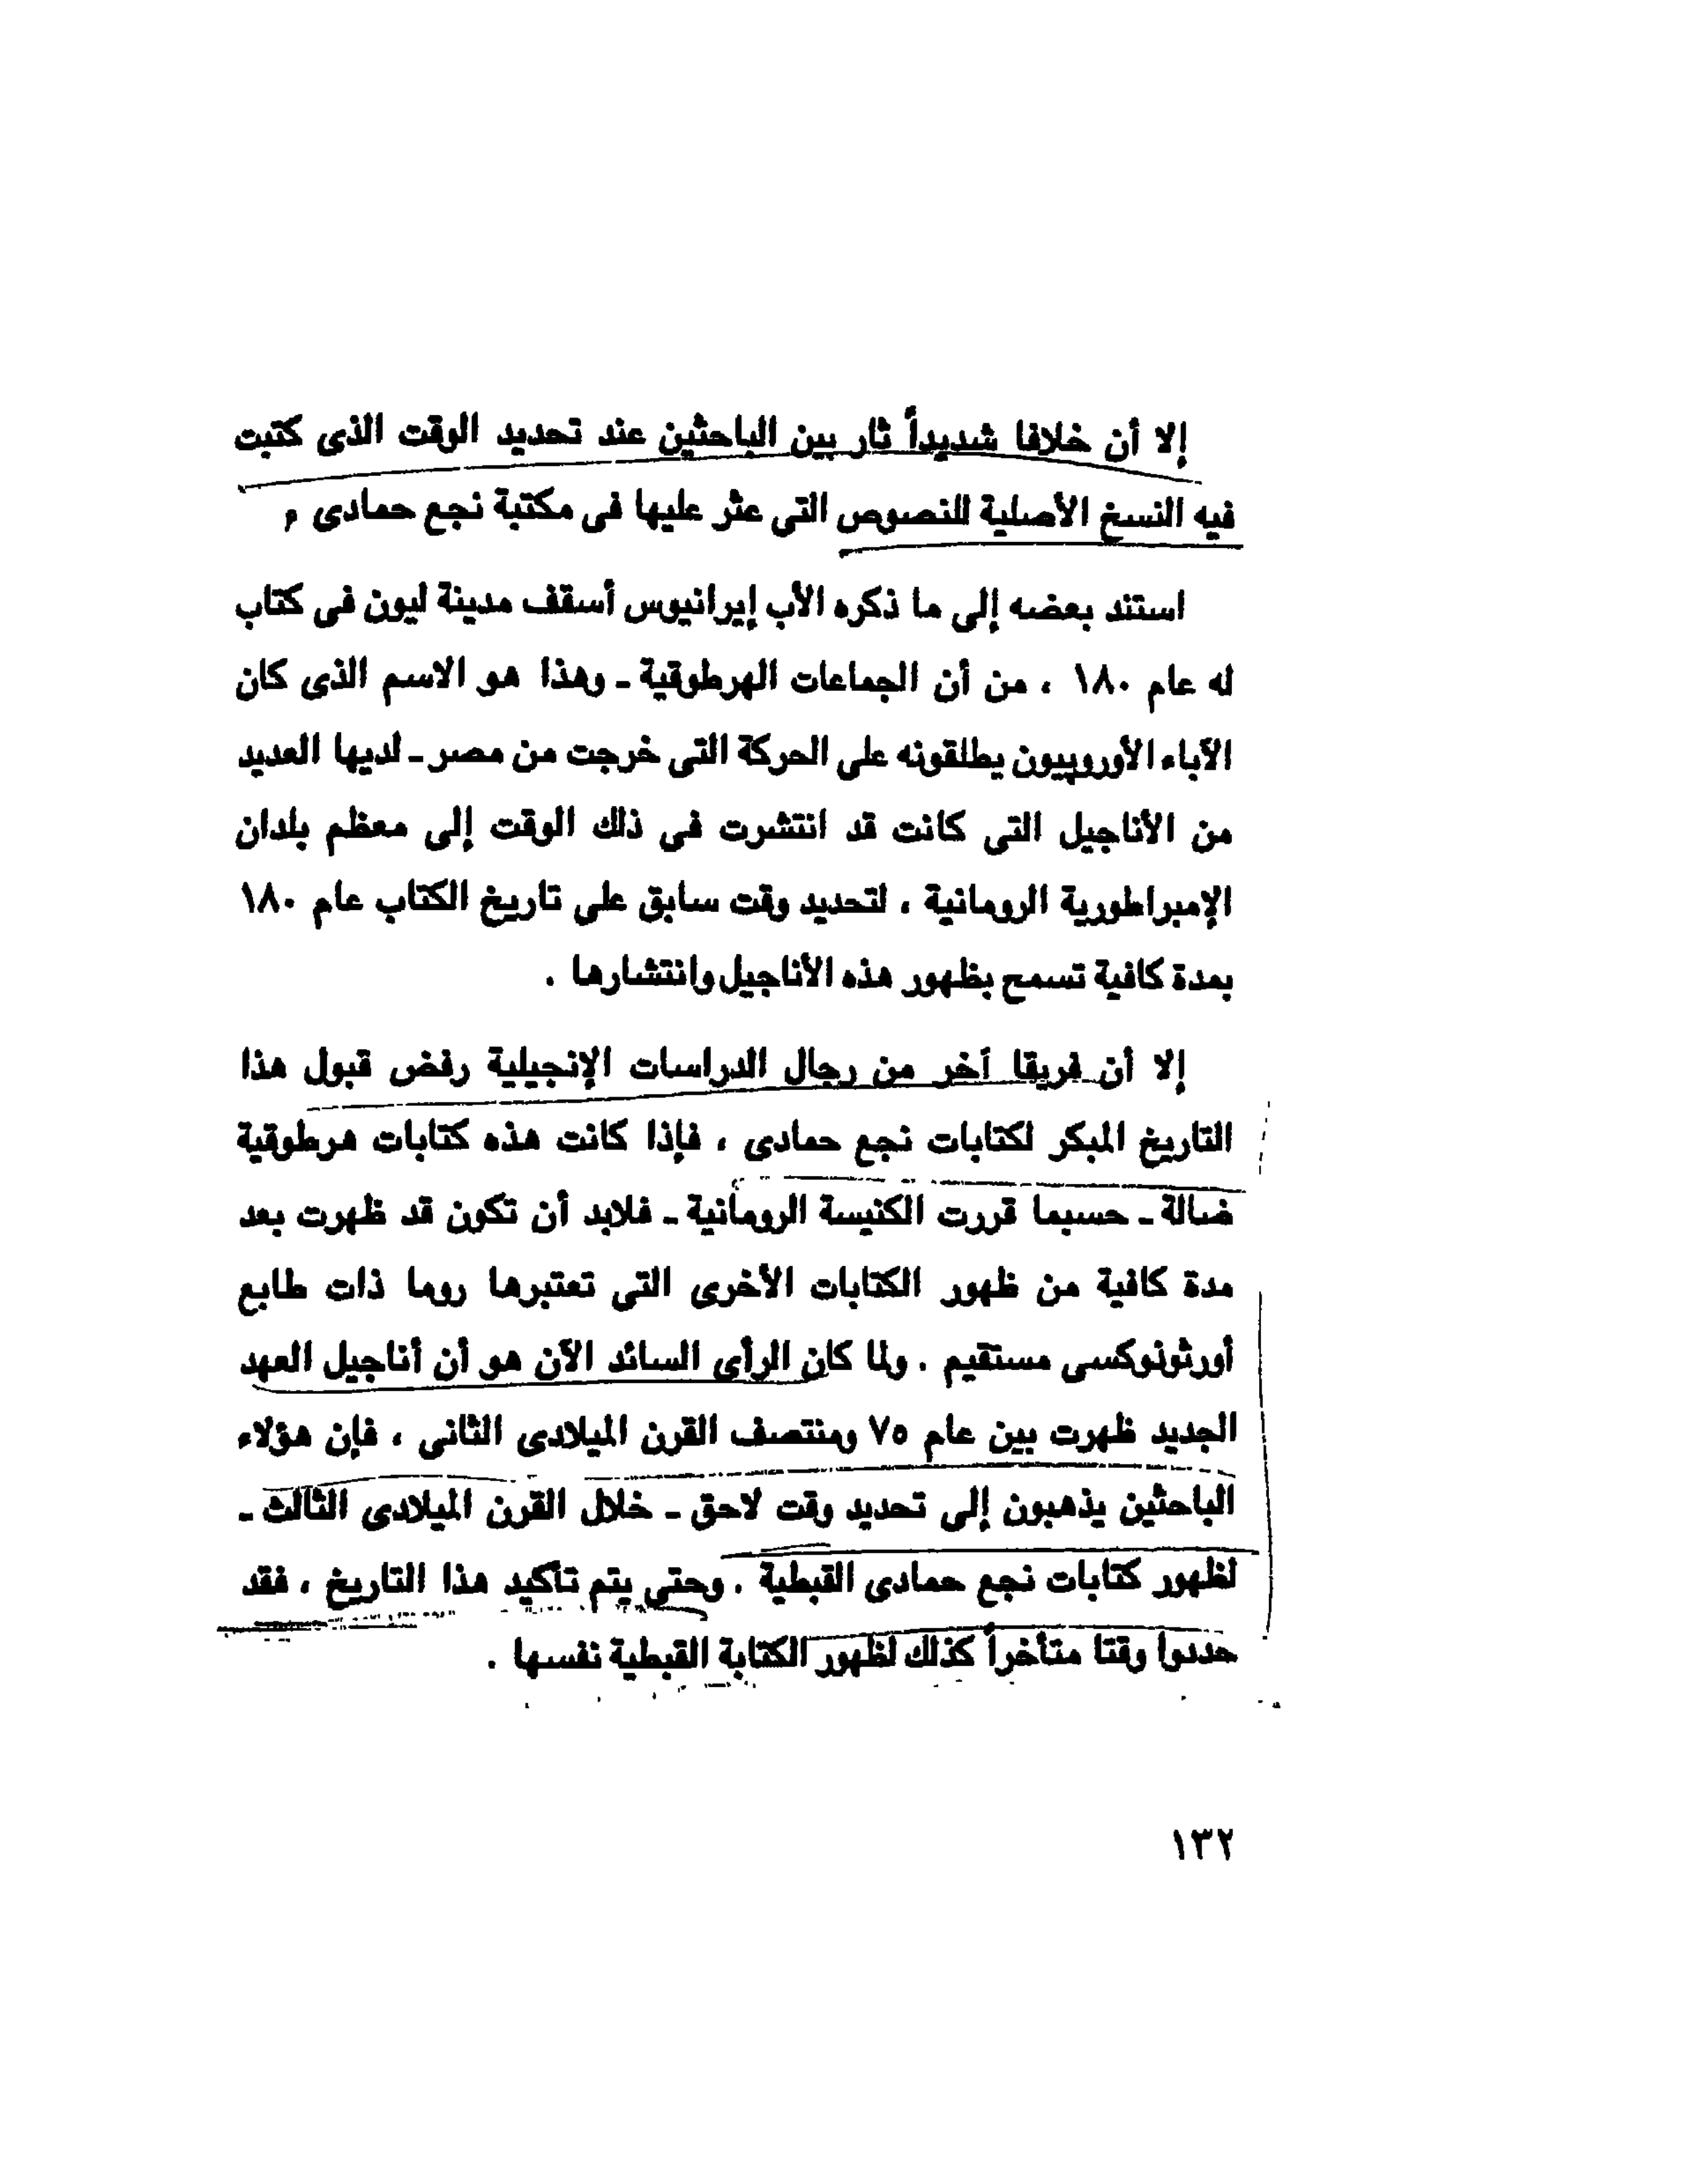 إلا أن خلافا شديداً ثار بين الباحثين عند تحديد الوقت الذى كتبت
فيه النسخ الأصلية للنصوص التي عثر عليها فى مكتبة نجع حمادى ,
استند بعضه إلى ما ذكره الأب إيرانيوس أسقف مدينة ليون فى كتاب
له عام ١٨٠ ، من أن الجماعات الهرطوقية ـ وهذا هو الاسم الذى كان
الآباء الأوروبيون يطلقونه على الحركة التى خرجت من مصر ـ لديها العديد
من الأناجيل التى كانت قد انتشرت في ذلك الوقت إلى معظم بلدان
الإمبراطورية الرومانية ، لتحديد وقت سابق على تاريخ الكتاب عام ١٨٠
بمدة كافية تسمح بظهور هذه الأناجيل وانتشارها .
إلا أن فريقا آخر من رجال الدراسات الإنجيلية رفض قبول هذا
التاريخ المبكر لكتابات نجع حمادى ، فإذا كانت هذه كتابات هرطوقية
ضالة ـ حسبما قررت الكنيسة الرومانية ـ فلابد أن تكون قد ظهرت بعد
مدة كافية من ظهور الكتابات الأخرى التى تعتبرها روما ذات طابع
أورثوذوكسى مستقيم . ولما كان الرأى السائد الآن هو أن أناجيل العهد
الجديد ظهرت بين عام ٧٥ ومنتصف القرن الميلادى الثانى ، فإن هؤلاء
الباحثين يذهبون إلى تحديد وقت لاحق ـ خلال القرن الميلادى الثالث ـ
لظهور كتابات نجع حمادى القبطية . وحتى يتم تأكيد هذا التاريخ ، فقد
حددوا وقتا متأخراً كذلك لظهور الكتابة القبطية نفسها .
١٣٢